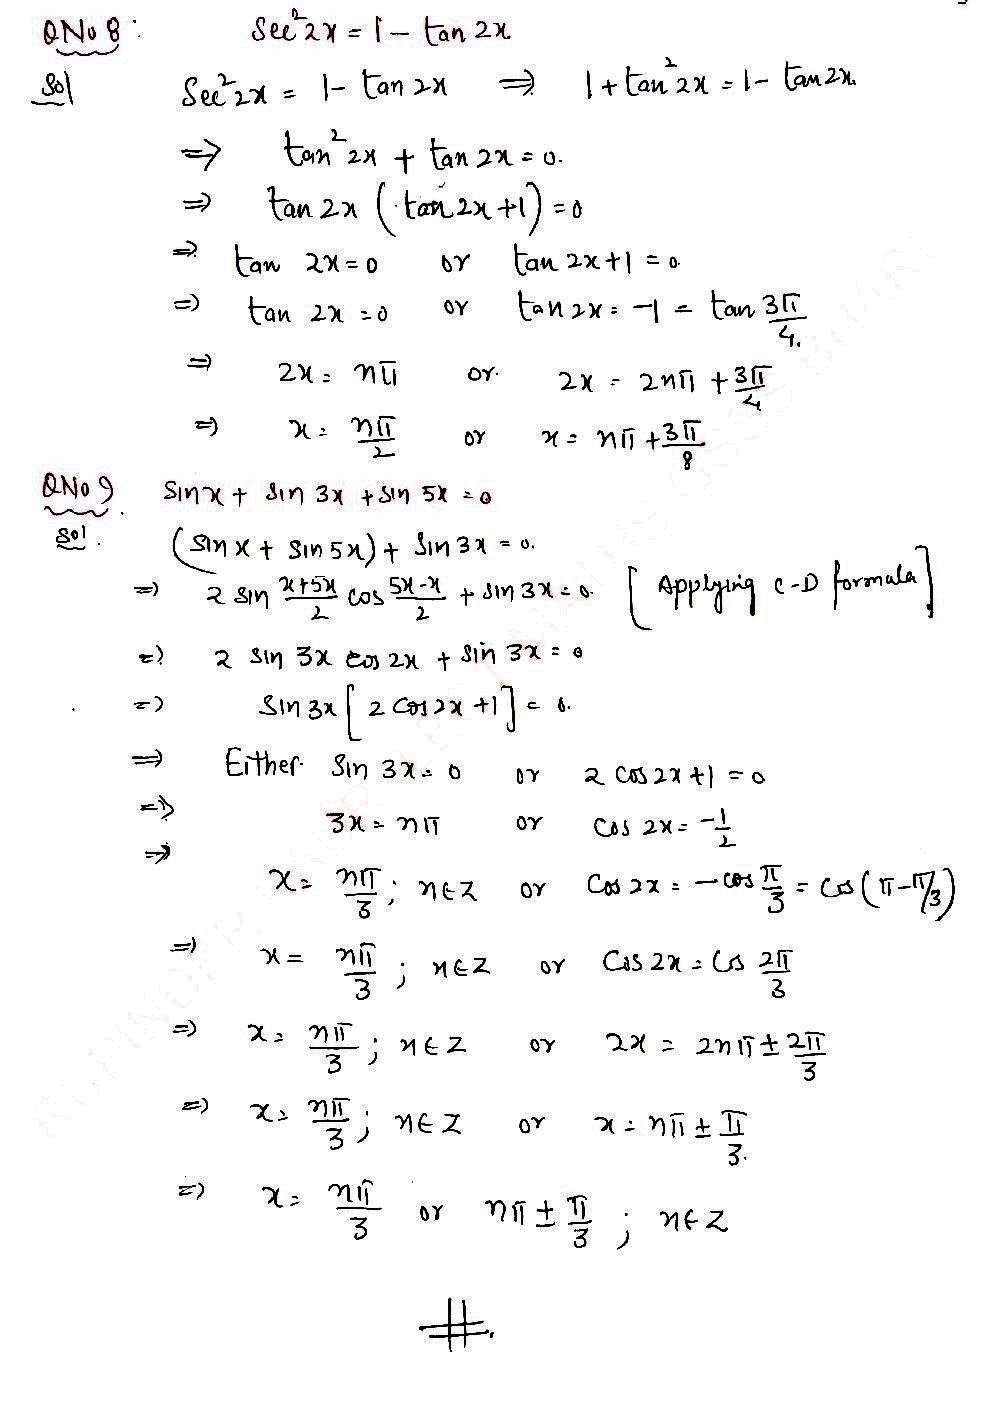 QNo 8: Sec²2x = 1 − tan 2x
Sol Sec²2x = 1 − tan 2x ⇒ 1 + tan²2x = 1 − tan 2x.
⇒ tan²2x + tan 2x = 0.
⇒ tan 2x (tan 2x + 1) = 0
⇒ tan 2x = 0 or tan 2x + 1 = 0.
⇒ tan 2x = 0 or tan 2x = −1 = tan 3π/4.
⇒ 2x = nπ or 2x = 2nπ + 3π/4
⇒ x = nπ/2 or x = nπ + 3π/8
QNo 9. Sinx + Sin 3x + Sin 5x = 0
Sol. (Sin x + Sin 5x) + Sin 3x = 0.
⇒ 2 Sin (x+5x)/2 cos (5x−x)/2 + Sin 3x = 0. [Applying C-D formula]
⇒ 2 Sin 3x cos 2x + Sin 3x = 0
⇒ Sin 3x [2 Cos 2x + 1] = 0.
⇒ Either Sin 3x = 0 or 2 Cos 2x + 1 = 0
⇒ 3x = nπ or Cos 2x = −1/2
⇒ x = nπ/3 ; n∈Z or Cos 2x = −cos π/3 = Cos(π−π/3)
⇒ x = nπ/3 ; n∈Z or Cos 2x = Cos 2π/3
⇒ x = nπ/3 ; n∈Z or 2x = 2nπ ± 2π/3
⇒ x = nπ/3 ; n∈Z or x = nπ ± π/3.
⇒ x = nπ/3 or nπ ± π/3 ; n∈Z